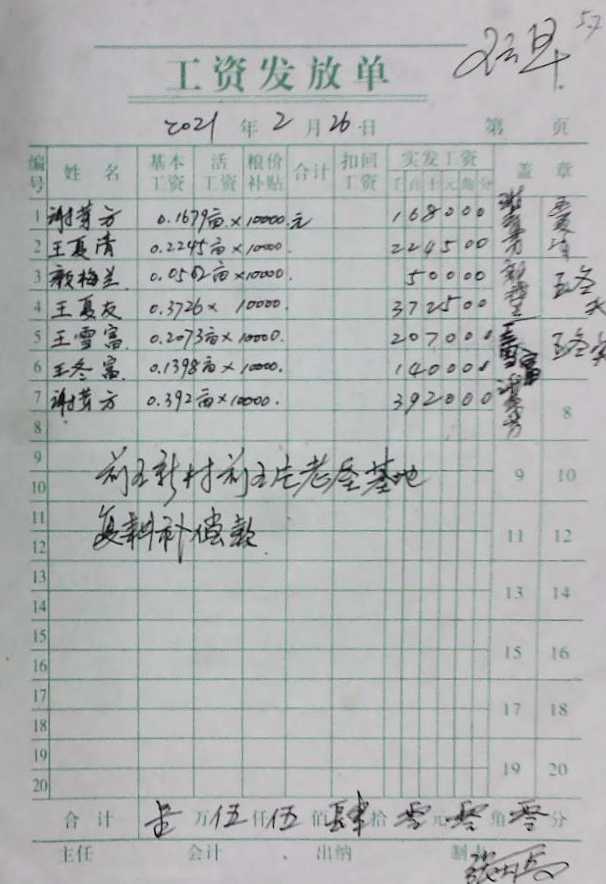 5.7
工资发放单
2021 年 2 月 26 日 第 页
编号 姓名 基本工资 活工资 粮价补贴 合计 扣回工资 实发工资 千百十元角分 盖章
1 谢芽方 0.1679亩×10000.元 168000
2 王夏清 0.2245亩×10000. 224500
3 顾梅兰 0.0502亩×10000. 50000
4 王夏友 0.3726× 10000. 372500
5 王雪富 0.2073亩×10000. 207000
6 王冬富 0.1398亩×10000. 140000
7 谢芽方 0.392亩×10000. 392000
8 8
9 前王新村前王庄老屋基地 9 10
10
11 复耕补偿款 11 12
12
13 13 14
14
15 15 16
16
17 17 18
18
19 19 20
20
合计 壹万伍仟伍佰肆拾零元零角零分
主任 会计 出纳 制表